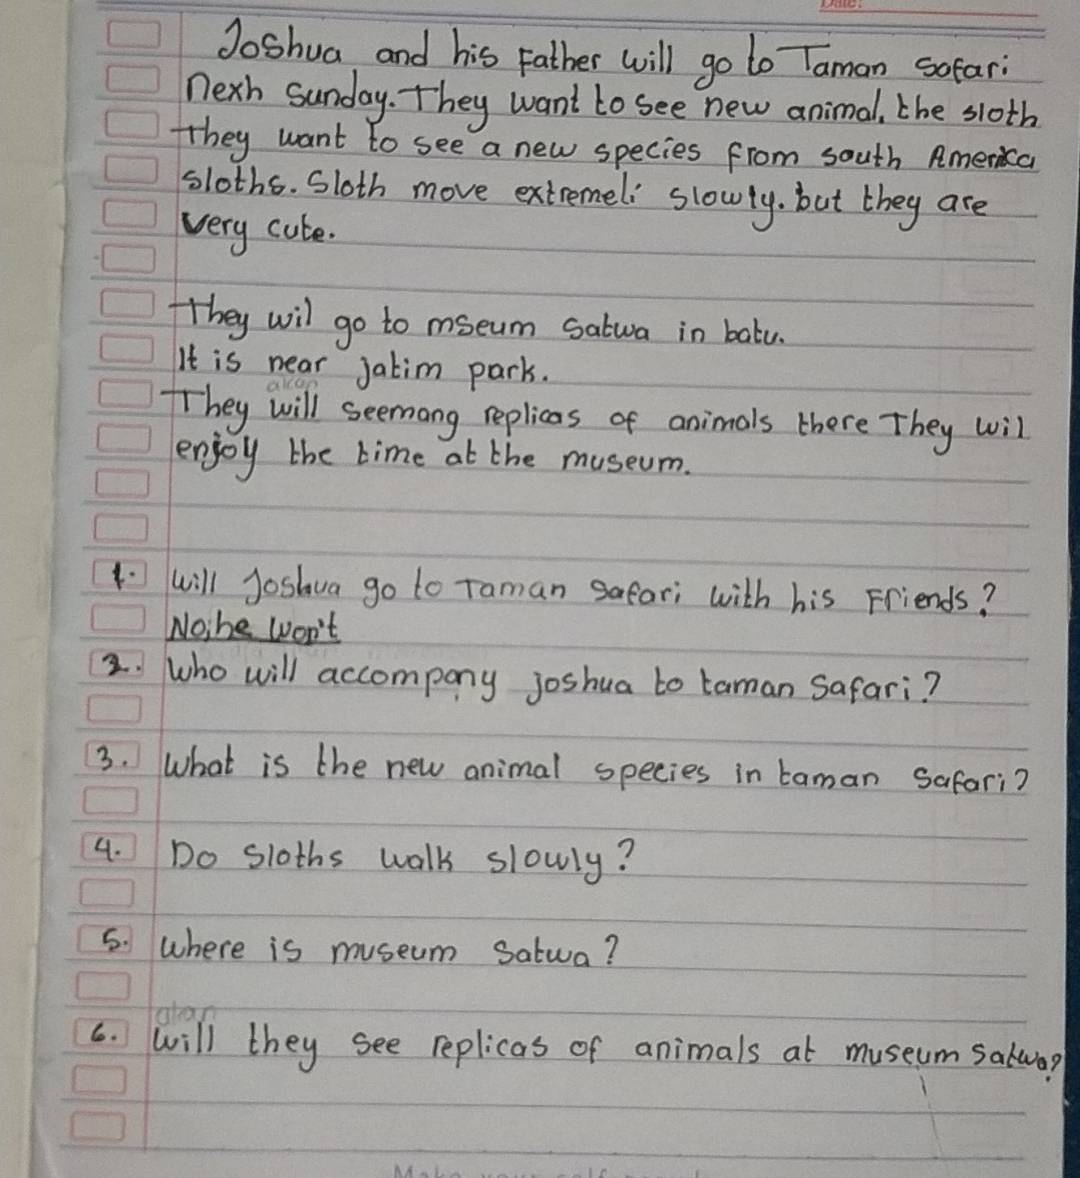 Date:
Joshua and his Father will go to Taman sofari
nexh sunday. They want to see new animal. the sloth
They want to see a new species from south America
sloths. Sloth move extremeli slowly. but they are
very cute.
They wil go to mseum satwa in batu.
It is near jatim park.
akan
They will seemang replicas of animals there They wil
enjoy the time at the museum.
1. Will Joshua go to Taman safari with his Friends?
No, he won't
2. Who will accompany joshua to taman Safari?
3. What is the new animal species in taman Safari?
4. Do sloths walk slowly?
5. Where is museum satwa?
6. Will they see replicas of animals at museum satwa?